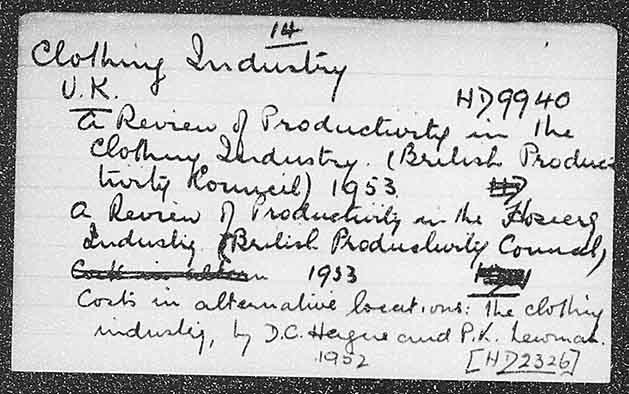 14
Clothing Industry
U.K.
HD9940
A Review of Productivity in the
Clothing Industry. (British Produc-
tivity Council) 1953
A Review of Productivity in the Hosiery
Industry. (British Productivity Council)
1953
Costs in alternative locations: the clothing
industry, by D.C. Hague and P.K. Newman.
1952 [HD2326]